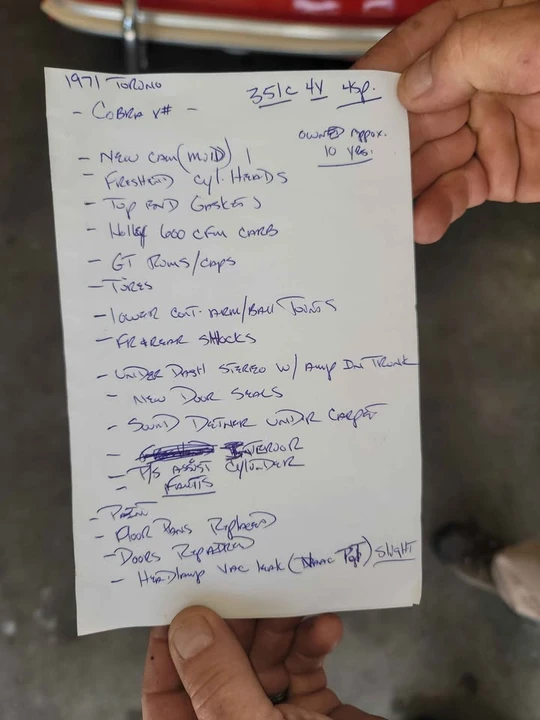 1971 TORINO 351C 4V 4SP.
- COBRA V# -
OWNED APPOX.
10 YRS.
- NEW CAM (MUID) 1
- FRESHEND CYL. HEADS
- TOP END GASKETS
- HOLLEY 600 CFM CARB
- GT RUMS/CAPS
- TORES
- LOWER CONT. ARM/BALL JOINTS
- FR & REAR SHOCKS
- UNDER DASH STEREO W/ AMP IN TRUNK
- NEW DOOR SEALS
- SOUND DETNER UNDER CARPET
- INTERIOR
- P/S ASSIST CYLINDER
- FAULTS
- PAINT
- FLOOR PANS REPLACED
- DOORS REPAIRED
- HEADLAMP VAC LEAK ( ) SLIGHT